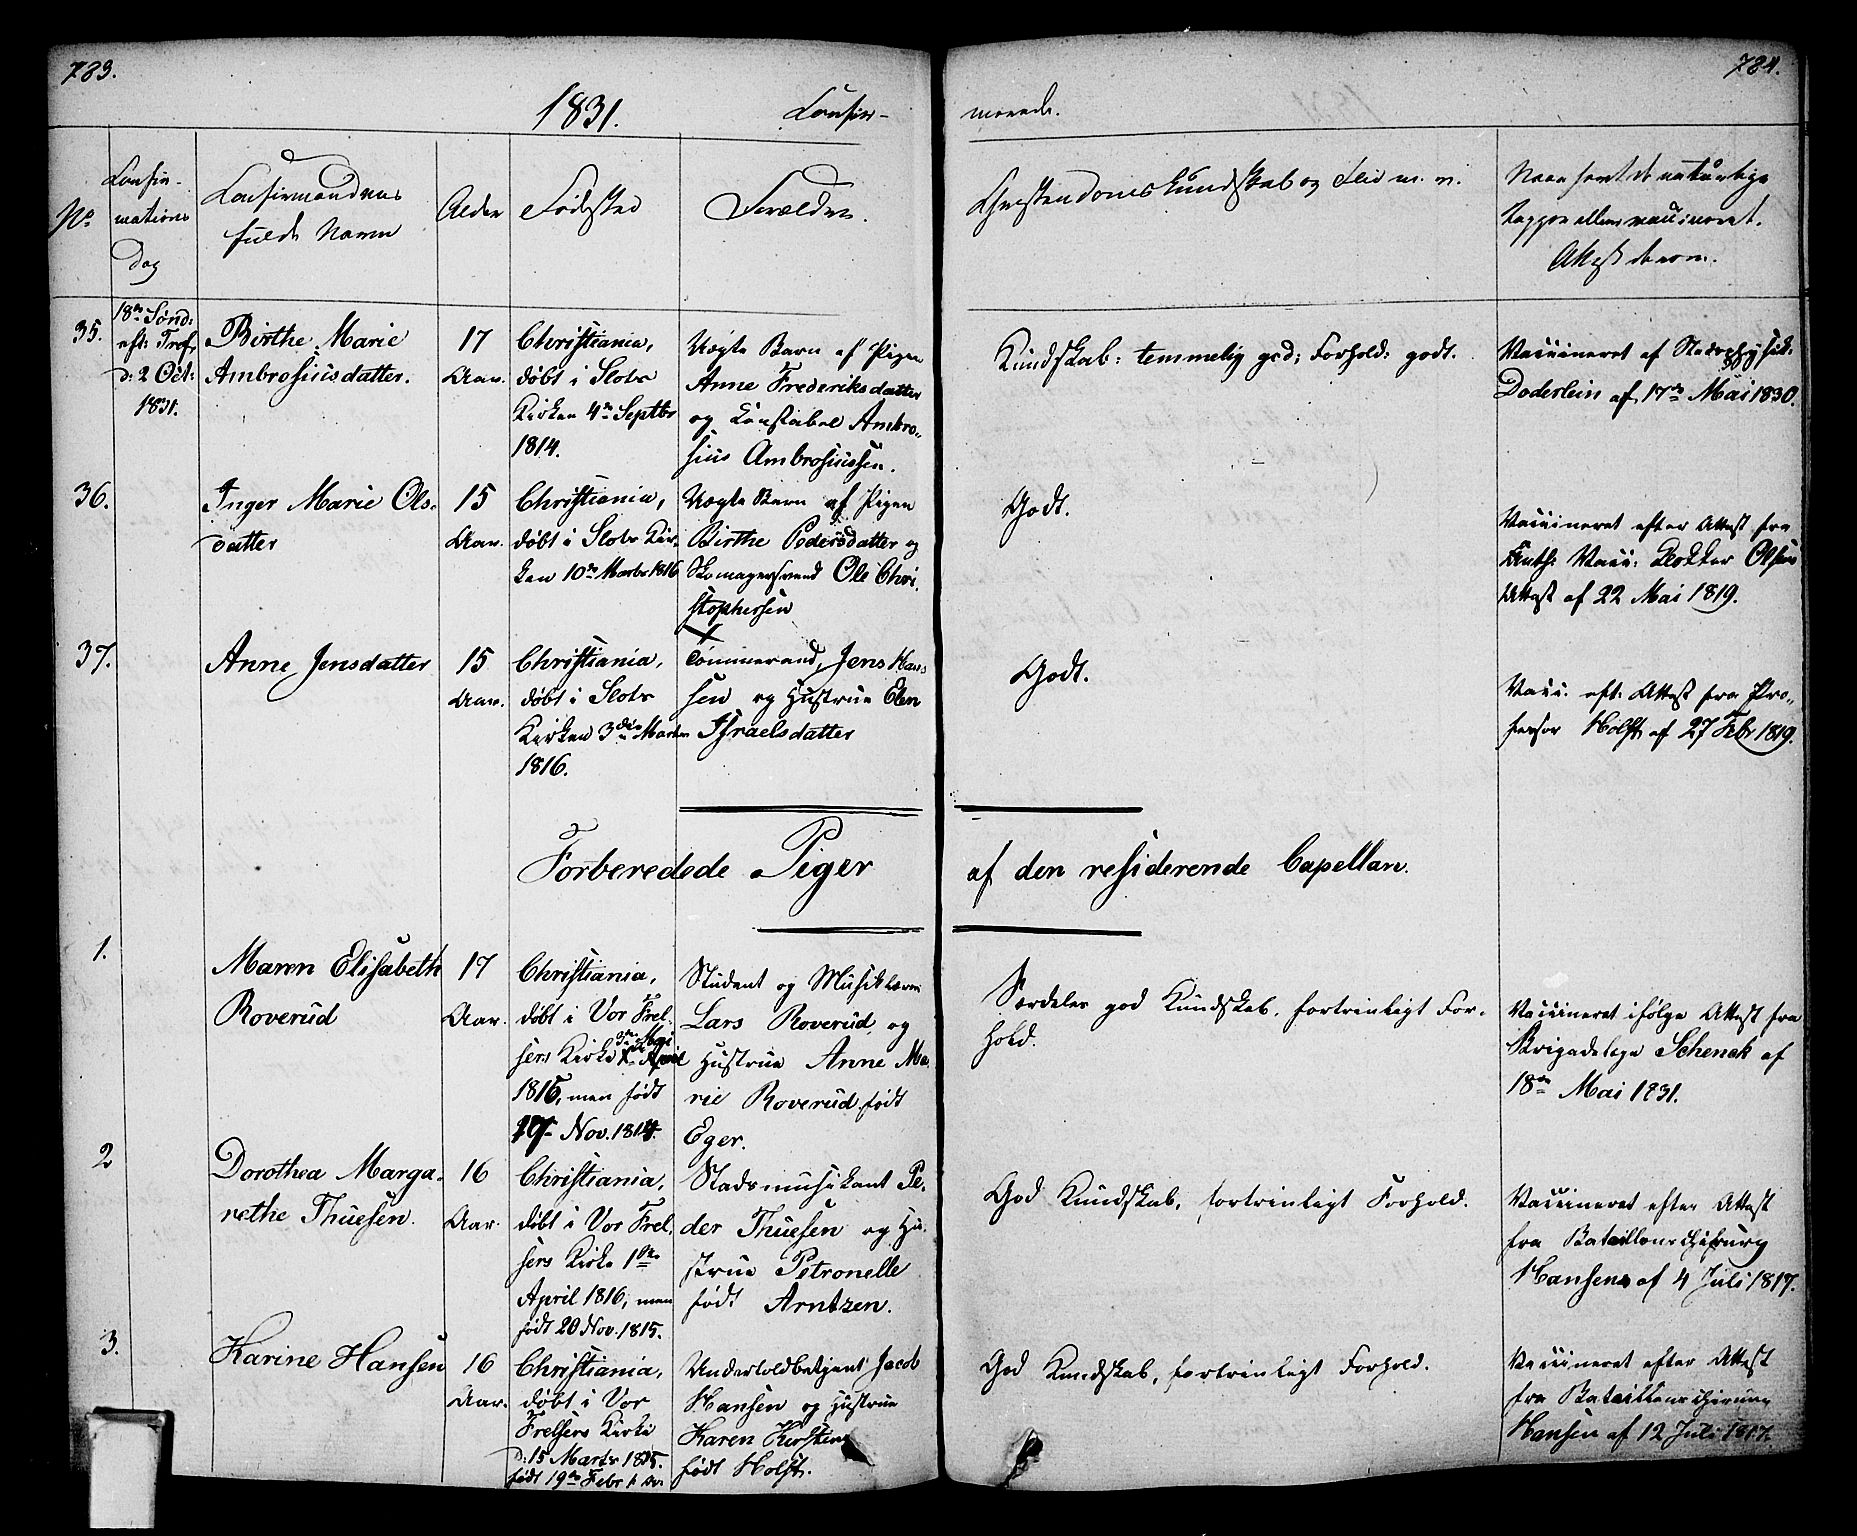 783.
784.
1831. Confir-
merede.
No.
Confir-
mations
Dag
Confirmandens
fulde Navn
Alder
Fødested
Forældre.
Christendoms kundskab og Flid m. m.
Naar havt de naturlige
Kopper eller vaccineret.
Attest derom.
35.
18de Sønd:
eft: Tref.
d: 2 Oct:
1831.
Birthe Marie
Ambrosiusdatter.
17
Aar.
Christiania,
døbt i Slots
Kirken 4de Septbr
1814.
Uægte Barn af Pigen
Anne Frederiksdatter
og Konstabel Ambro-
sius Ambrosiussen.
Kundskab: temmelig god; Forhold: godt.
Vaccineret af Stadsphysik.
Doderlein af 17de Mai 1830.
36.
Inger Marie Ols-
datter
15
Aar.
Christiania,
døbt i Slots Kir-
ken 10de Marts 1816
Uægte Barn af Pigen
Birthe Pedersdatter og
Skomagersvend Ole Chri-
stophersen
Godt.
Vaccineret efter Attest fra
Auth: Vacc: Klokker Olsen
Attest af 22 Mai 1819.
37.
Anne Jensdatter
15
Aar.
Christiania,
døbt i Slots
Kirken 3die Marts
1816.
Tømmermand Jens Han-
sen og Hustrue Elen
Israelsdatter
Godt.
Vacc. eft: Attest fra Pro-
fessor Holst af 27 Febr 1819.
Forberedede Piger af den residerende Capellan.
1.
Maren Elisabeth
Roverud
17
Aar.
Christiania,
døbt i Vor Frel-
sers Kirke 3de Mai
April
1815, men født
Nov. 1814.
Student og Musiklærer
Lars Roverud og
Hustrue Anne Ma-
rie Roverud født
Eger.
Særdeles god Kundskab, fortrinligt For-
hold.
Vaccineret ifølge Attest fra
Brigadelæge Schenck af
18de Mai 1831.
2
Dorothea Marga-
rethe Thuesen.
16
Aar.
Christiania,
døbt i Vor Frel-
sers Kirke 1ste
April 1816, men
født 20 Nov. 1815.
Stadsmusikant Pe-
der Thuesen og Hu-
strue Petronelle
født Arntzen.
God Kundskab, fortrinligt Forhold.
Vaccineret efter Attest
fra Bataillonschirurg
Hansen af 4 Juli 1817.
3.
Karine Hansen
16
Aar.
Christiania,
døbt i Vor
Frelsers Kirke
d: 15 Marts 1815.
født 19de Febr s. A.
Undertoldbetjent Jacob
Hansen og Hustrue
Karen Kirstine
født Holst.
God Kundskab, fortrinligt Forhold.
Vaccineret efter Attest
fra Bataillonschirurg
Hansen af 12 Juli 1817.